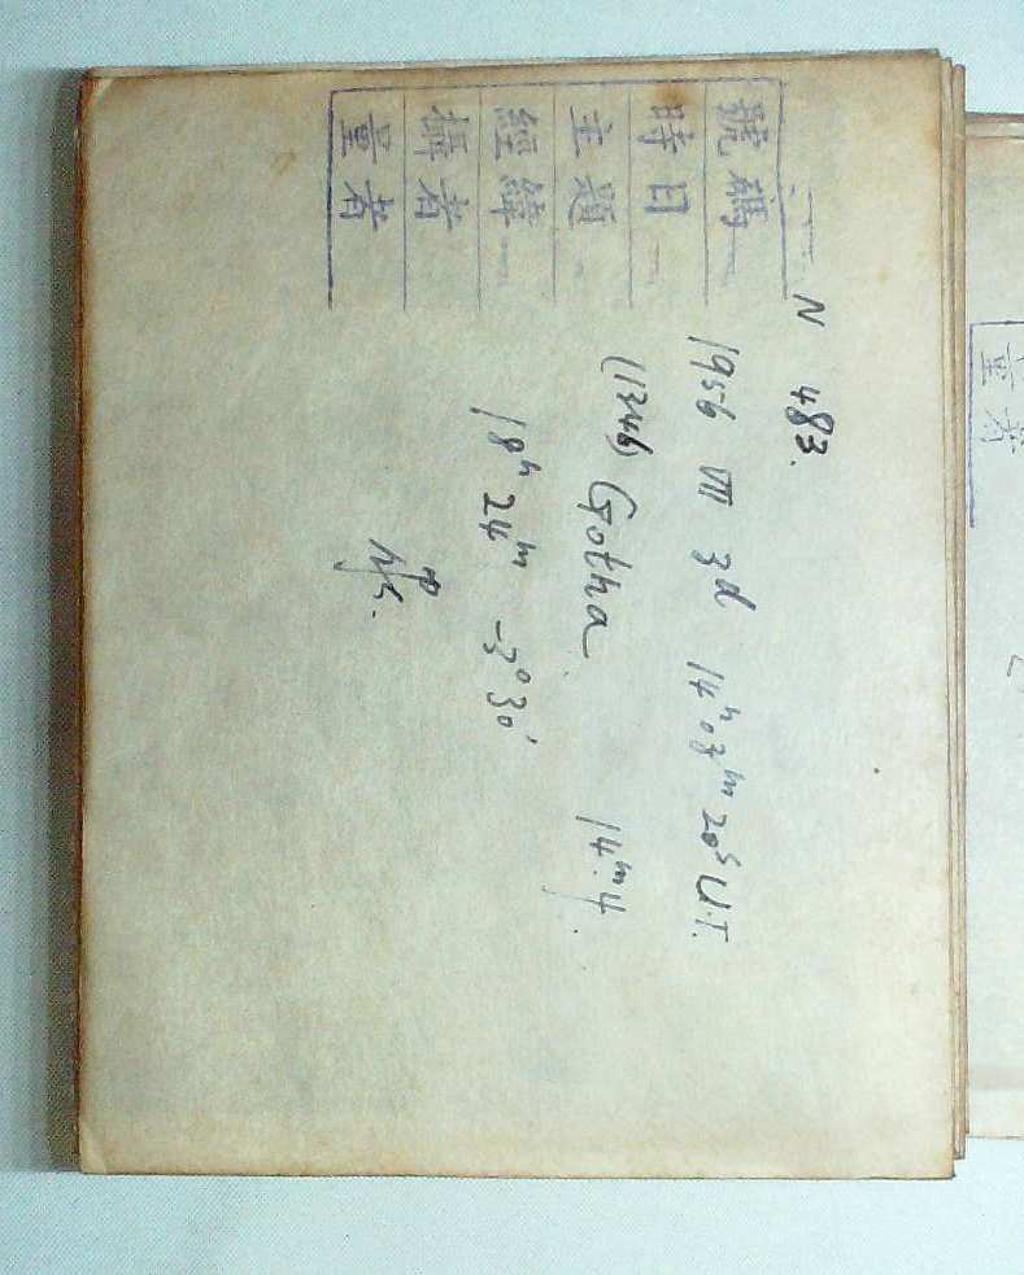 號碼 N 483.
時日 1956 VII 3d 14h 07m 20s U.T.
主題 (1346) Gotha 14m.4
經緯 18h 24m -3° 30'
攝者
量者
量者